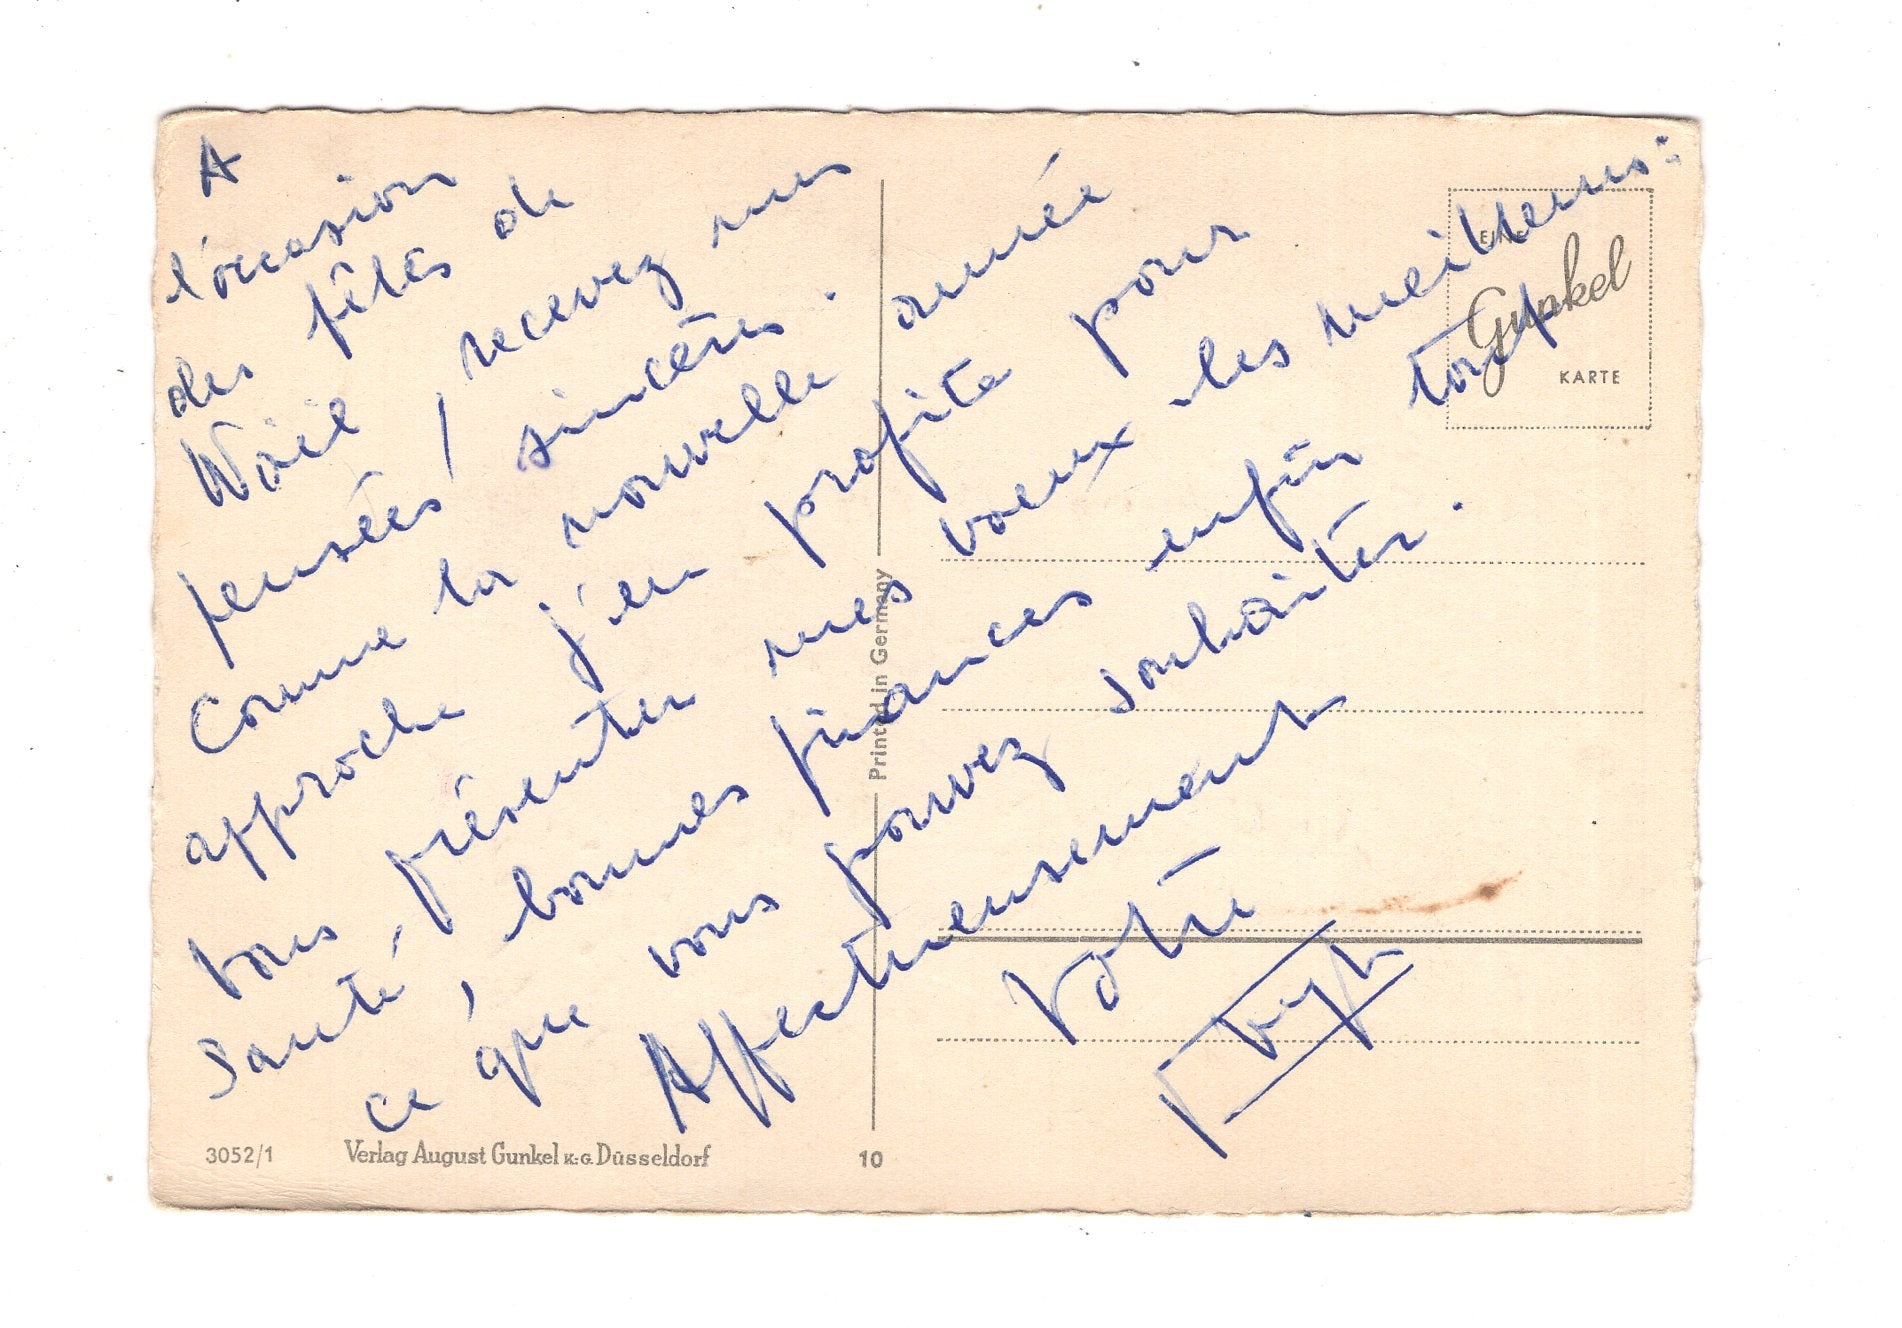 A
l'occasion
des fêtes de
Noël, recevez mes
pensées sincères.
Comme la nouvelle année
approche j'en profite pour
vous présenter mes voeux les meilleurs:
Santé, bonnes finances enfin tout
ce que vous pouvez souhaiter.
Affectueusement
Votre
Gunkel
KARTE
Printed in Germany
3052/1 Verlag August Gunkel K.-G. Düsseldorf 10